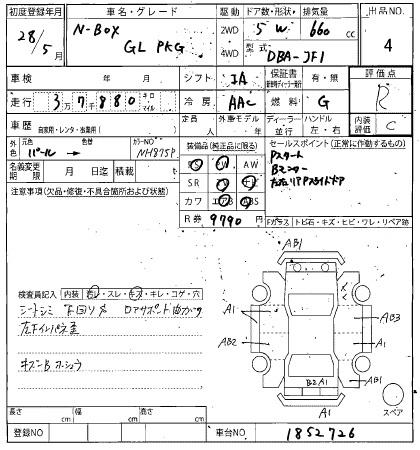 初度登録年月 車名・グレード 駆動 ドア数・形状 排気量 出品NO
28/5月 N-BOX GL PKG 2WD 4WD 5 W 660 cc 4
型式 DBA-JF1
車検 年 月 シフト IA 保証書 有・無 評価点
走行 3万7千880 キロ マイル 冷房 AAC 燃料 G R
車歴 自家用・レンタ・事業用( ) 定員 人 外車モデル 年 ディーラー 並行 ハンドル 左・右 内装評価 C
外色 元色 パール 色替 カラーNO NH875P
装備品(純正品に限る) セールスポイント(正常に作動するもの)
名義変更期限 月 日迄 積載
PS PW AW
SR
カワ エアB ABS
Pスタート
Bモニター
R券 9790 円
注意事項(欠品・修復・不具合箇所および状態)
Fガラス トビ石・キズ・ヒビ・ワレ・リペア跡
AB1
A1 AB3
AB2 A1
B2 A1 AB1
A1
スペア
検査員記入 内装 ヨレ・スレ・キズ・キレ・コゲ・穴
シートシミ 下回りサ
キズB
長さ cm 幅 cm 高さ cm
登録NO 車台NO 1852726